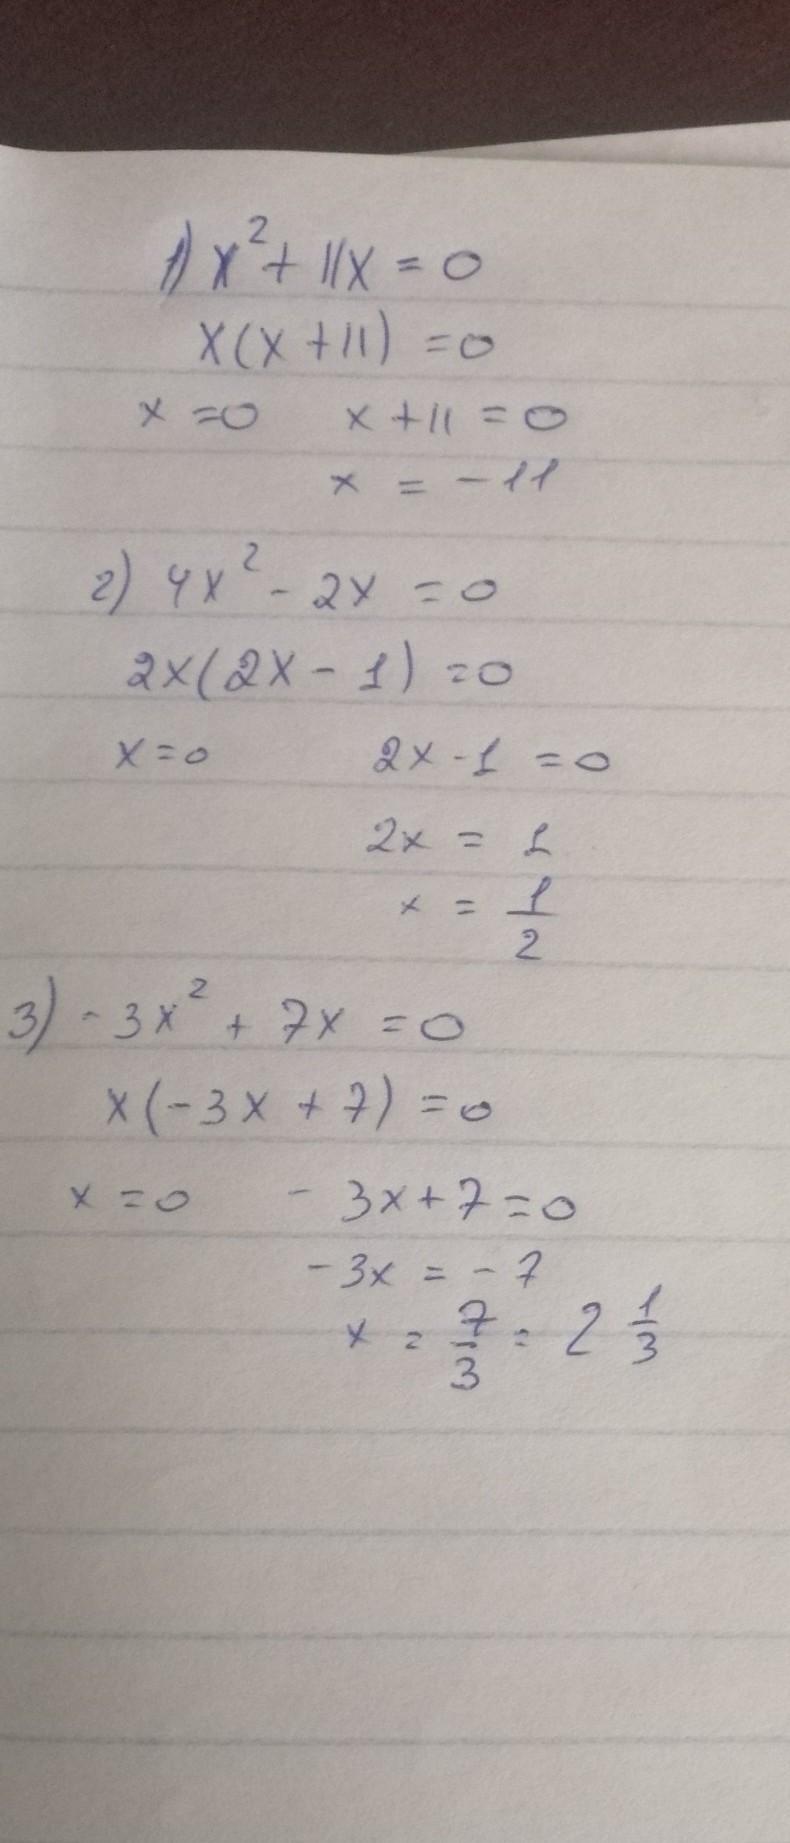 1) x² + 11x = 0
x(x + 11) = 0
x = 0 x + 11 = 0
x = -11
2) 4x² - 2x = 0
2x(2x - 1) = 0
x = 0 2x - 1 = 0
2x = 1
x = 1/2
3) -3x² + 7x = 0
x(-3x + 7) = 0
x = 0 -3x + 7 = 0
-3x = -7
x = 7/3 = 2 1/3